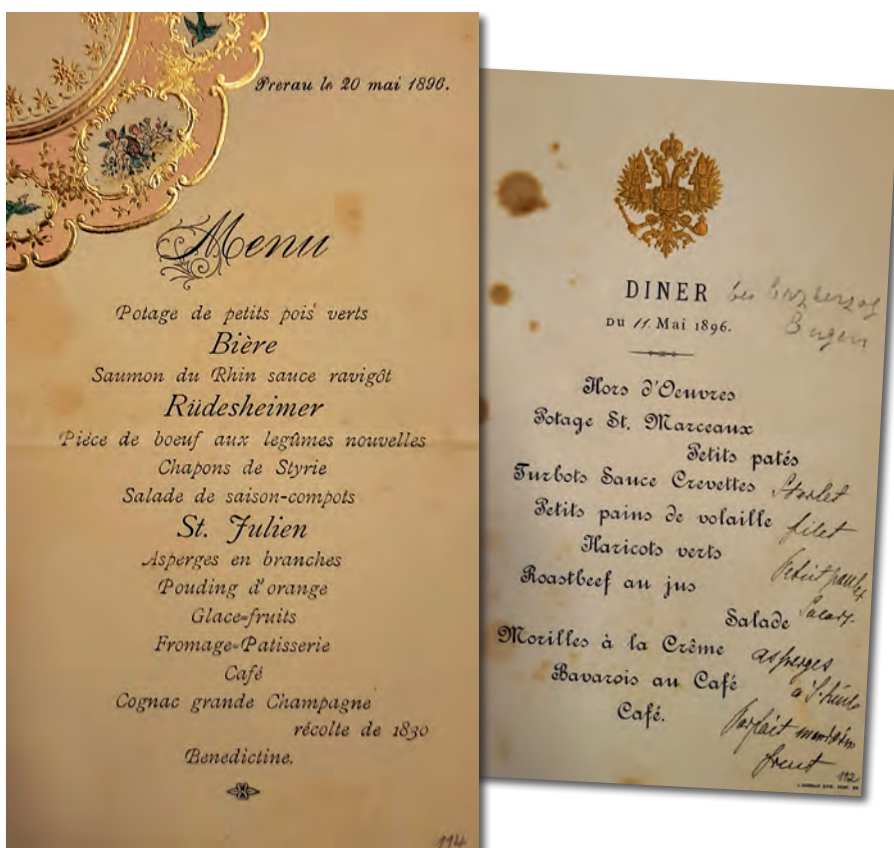 Prerau le 20 mai 1896.
Menu
Potage de petits pois verts
Bière
Saumon du Rhin sauce ravigôt
Rüdesheimer
Pièce de boeuf aux legûmes nouvelles
Chapons de Styrie
Salade de saison-compots
St. Julien
Asperges en branches
Pouding d'orange
Glace-fruits
Fromage-Patisserie
Café
Cognac grande Champagne
récolte de 1830
Benedictine.
114
DINER bei Erzherzog
DU 11. Mai 1896. Eugen
Hors d'Oeuvres
Potage St. Marceaux
Petits patés
Turbots Sauce Crevettes Sterlet
Petits pains de volaille filet
Haricots verts
Roastbeef au jus
Salade
Morilles à la Crême asperges
Bavarois au Café
Café.
Parfait
112